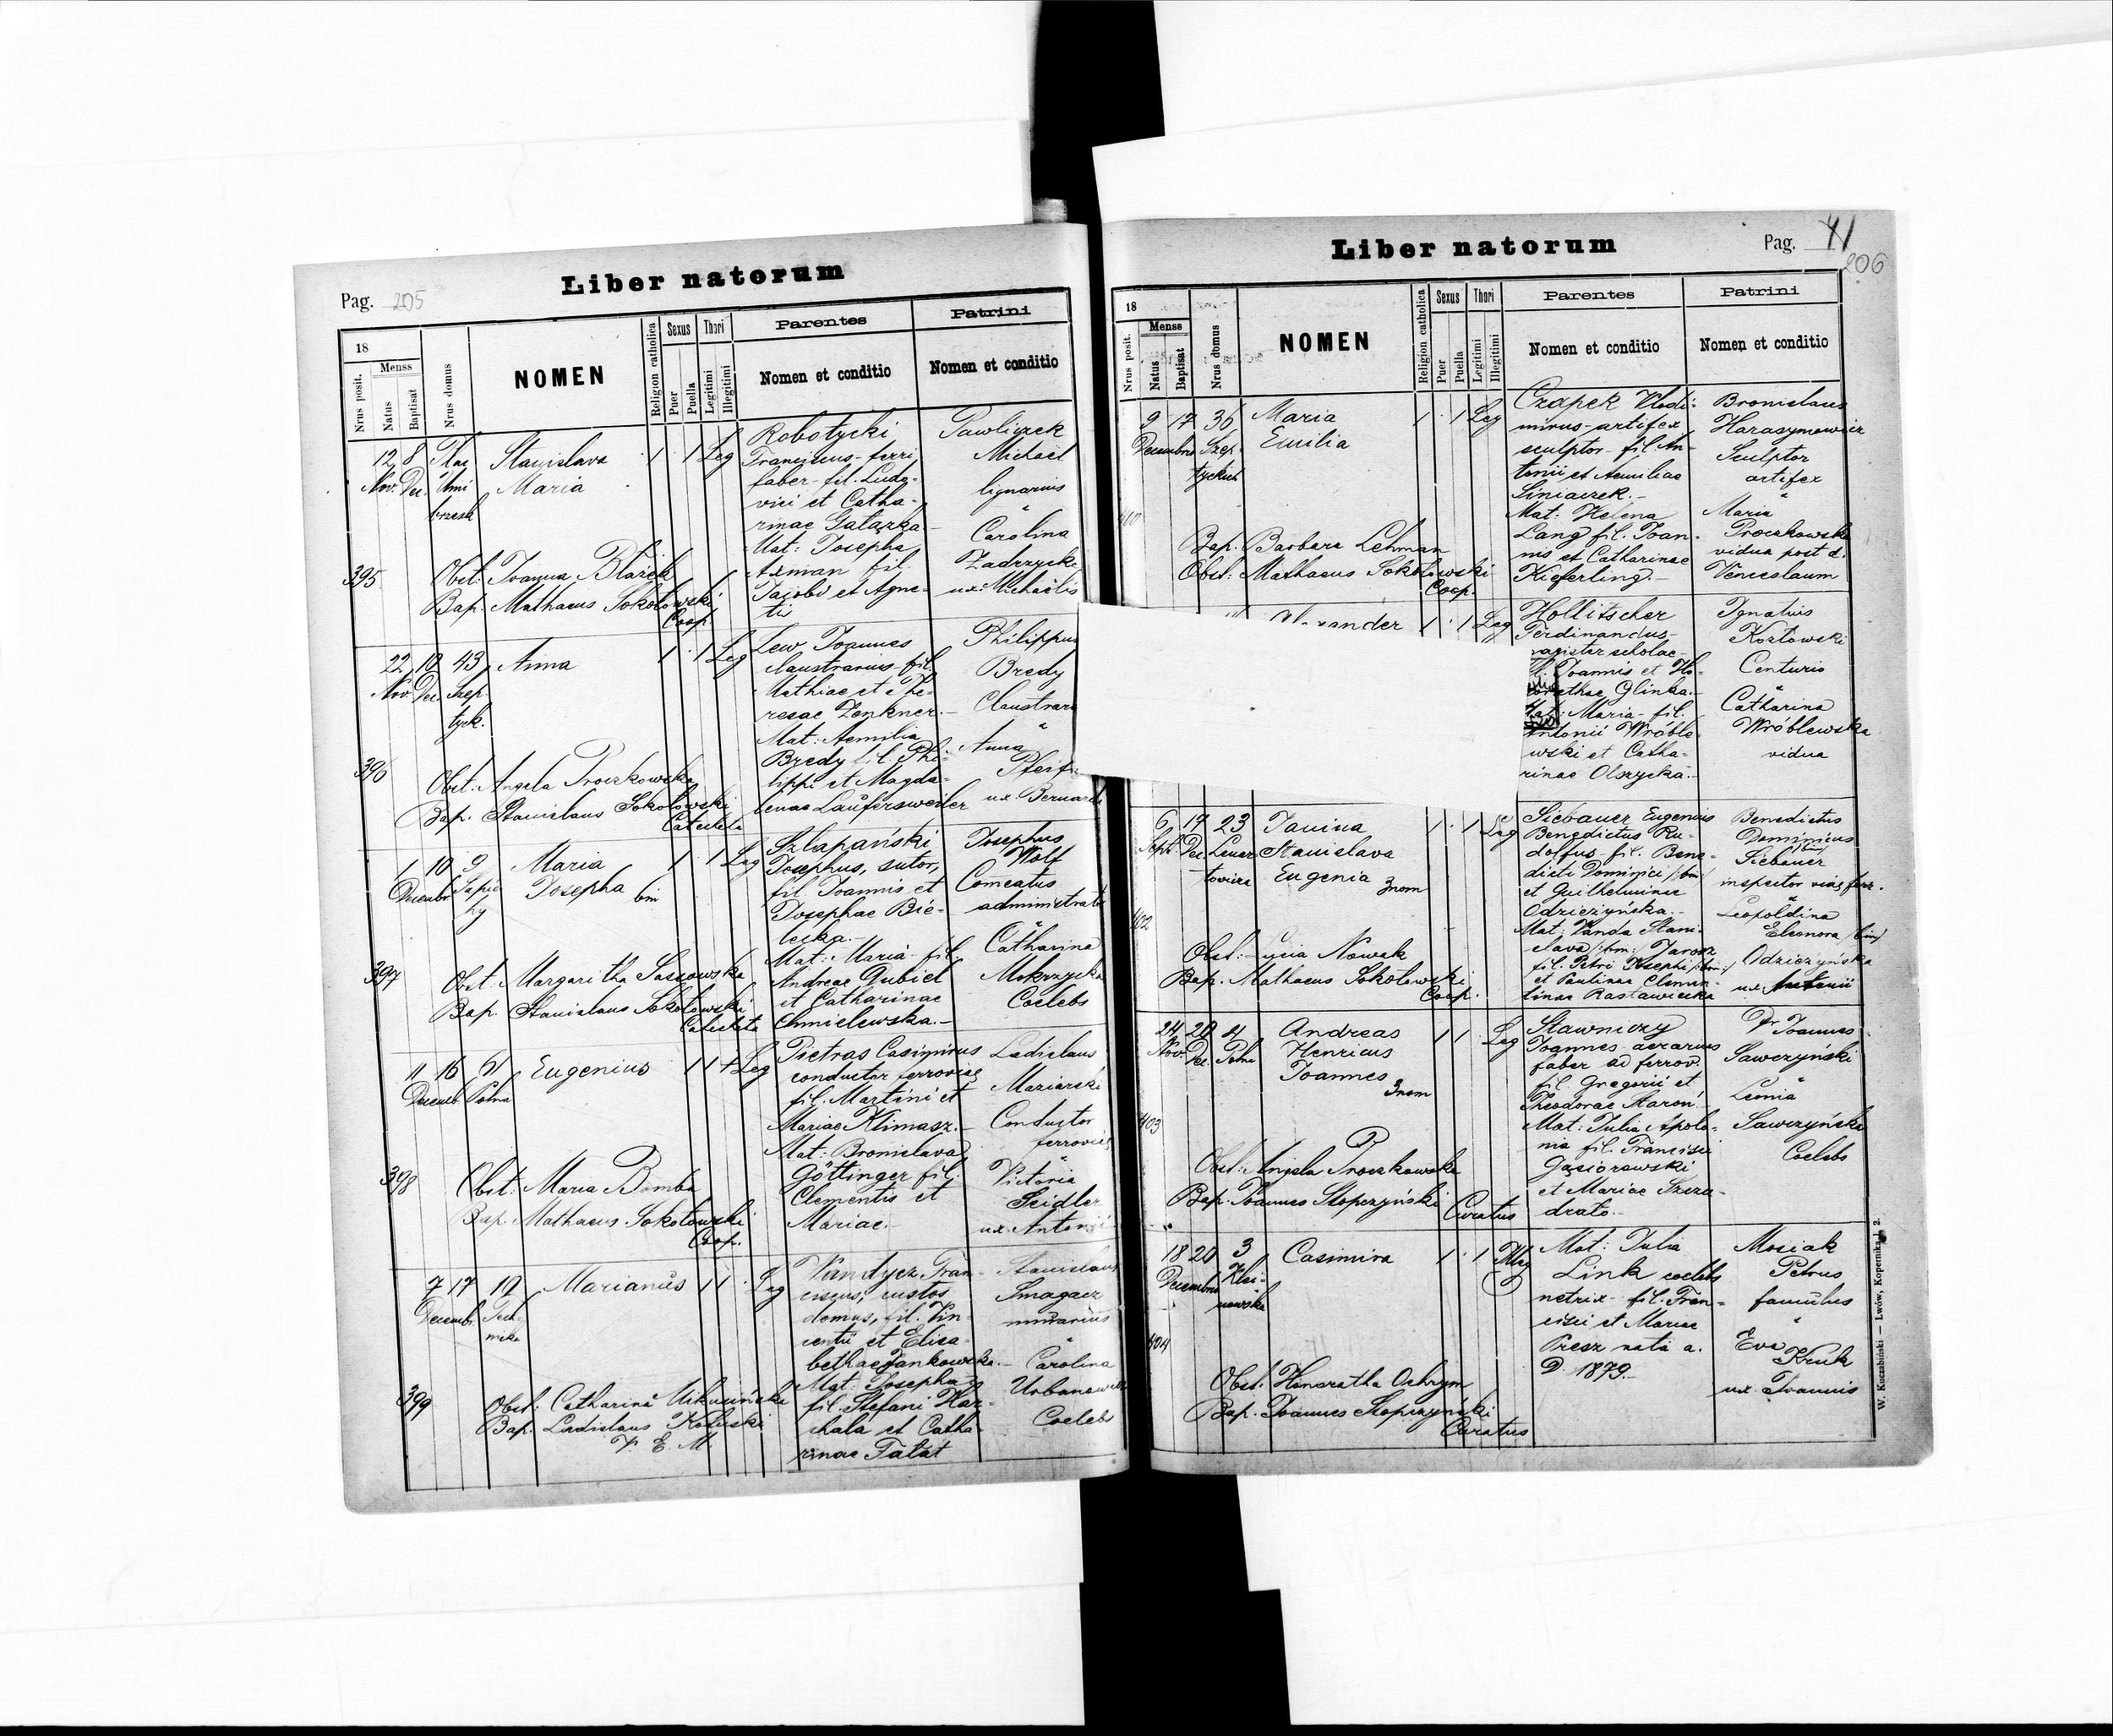 Pag. 205
Liber natorum
18
Nrus posit.
Menss
Natus
Baptisat
Nrus domus
NOMEN
Religion catholica
Sexus
Puer
Puella
Thori
Legitimi
Illegitimi
Parentes
Nomen et conditio
Patrini
Nomen et conditio
395
12 8
Nov. Dec.
Stanislava
Maria
1 1 Leg
Obst: Joanna Blazek
Bap. Mathaeus Sokołowski
Coop
Robotycki
Franciscus - ferri
faber - fil. Ludo-
vici et Catha-
rinae Gałązka -
Mat: Josepha
Axman fil.
Jacobi et Agne-
tis
Pawliczek
Michael
lignarius
"
Carolina
Zadrzycka
ux. Michaelis
396
22 10 43
Nov. Dec. Szep
tyck.
Anna
1 1 Leg
Obst: Angela Proczkowska
Bap. Stanislaus Sokołowski
Catecheta
Lew Joannes
claustrarius - fil.
Mathiae et The-
resae Zenkner. -
Mat: Aemilia
Bredy fil. Phi-
lippi et Magda-
lenae Laufersweiler
Philippus
Bredy
Claustrar
"
Anna
Pfeif
ux. Bernardi
397
1 10 9
Decembr Sapie
hy
Maria
Josepha bin
1 1 Leg
Obst. Margaritha Sassowska
Bap. Stanislaus Sokołowski
Catecheta
Szlapański
Josephus, sutor,
fil. Joannis et
Josephae Bie-
lecka. -
Mat: Maria - fil.
Andreae Dubiel
et Catharinae
Chmielewska. -
Josephus
Wolf
Comeatus
administrator
"
Catharina
Mokrzycka
Coelebs
398
11 16 61
Decemb. Potna
Eugenius
1 1 Leg
Obst: Maria Bomba
Bap. Mathaeus Sokołowski
Coop.
Pietras Casimirus
conductor ferroviae
fil. Martini et
Mariae Klimasz. -
Mat: Bronislava
Göttinger fil.
Clementis et
Mariae.
Ladislaus
Maziarski
Conductor
ferroviae
"
Victoria
Seidler
ux. Antonii
399
7 17 19
Decembr. Tech
nika
Marianus
1 1 Leg
Obst: Catharina
Bap. Ladislaus
Vandycz Fran-
ciscus, custos
domus, fil. Vin-
centii et Elisa-
bethae Jankowska. -
Mat: Josepha
fil. Stefani Har-
chala et Catha-
rinae Fałat
Stanislaus
Smagacz
murarius
"
Carolina
Urbanowicz
Coelebs
Liber natorum
Pag. 41
206
18
Nrus posit.
Menss
Natus
Baptisat
Nrus domus
NOMEN
Religion catholica
Sexus
Puer
Puella
Thori
Legitimi
Illegitimi
Parentes
Nomen et conditio
Patrini
Nomen et conditio
400
9 17 36
Decembris Szep
tyckich
Maria
Emilia
1 1 Leg
Bap. Barbara Lehman
Obst: Mathaeus Sokołowski
Coop.
Czapek Vlodi-
mirus - artifex
sculptor - fil. An-
tonii et Aemiliae
Siniaczek. -
Mat: Helena
Lang fil. Joan-
nis et Catharinae
Kieferling. -
Bronislaus
Harasymowicz
Sculptor
artifex
"
Maria
Proczkowska
vidua post d.
Venceslaum
1 1 Leg
Hollitscher
Ferdinandus -
magister scholae -
fil. Joannis et
Glinka. -
Mat: Maria - fil.
Antonii Wróble-
wski et Catha-
rinae Olszycka. -
Ignatius
Kozłowski
Centurio
"
Catharina
Wróblewska
vidua
402
6 17 23
Sept. Dec.
Janina
Stanislava
Eugenia 3nom
1 1 Leg
Obst: Lucia Nowak
Bap. Mathaeus Sokołowski
Coop.
Siebauer Eugenius
Benedictus Ru-
dolfus - fil. Bene-
dicti Dominici /:bin:/
et Guilhelminae
Odzieżyńska. -
Mat: Vanda Stani-
slava /:bin:/ Jarosz
fil. Petri Josephi /:bin:/
et Paulinae Clemen-
tinae Rastawiecka
Benedictus
Dominicus
/bin/
Siebauer
inspector viae ferr.
"
Leopoldina
Eleonora /bin/
Odzieżyńska
ux Antonii
403
24 20 4
Nov. Dec. Potna
Andreas
Henricus
Joannes
3nom
1 1 Leg
Obst: Angela Proczkowska
Bap. Joannes Słopczyński
Curatus
Sławniczy
Joannes - aerarius
faber ad ferrov.
fil. Gregorii et
Theodorae Maroń.
Mat: Julia Apolo-
nia fil. Francisci
Gąsiorowski
et Mariae Szcza-
drato. -
Dr Joannes
Sawczyński
"
Leonia
Sawczyńska
Coelebs
404
18 20 3
Decembris Klei-
nowska
Casimira
1 1 Illeg
Obst. Honoratha Ochrym
Bap. Joannes Słopczyński
Curatus
Mat: Julia
Link coelebs
netrix - fil. Fran-
cisci et Mariae
Presz nata a.
D. 1879. -
Mosiak
Petrus
famulus
"
Eva
Kruk
ux. Joannis
W. Kuczabiński — Lwów, Kopernika l. 2.